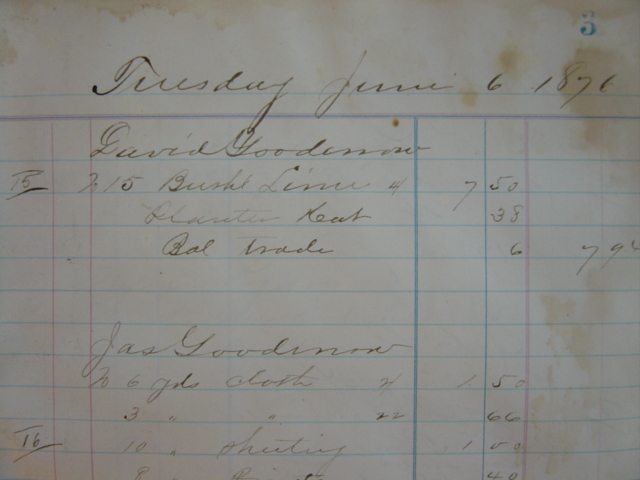 3
Tuesday June 6 1876
David Goodenow
15 To 15 Bushl Lime 4/ 7 50
Hat 38
Bal trade 6 7 94
Jas Goodenow
To 6 yds cloth 2/ 1 50
3 " " 22 66
16 10 " Sheeting 1 00
8 " 40